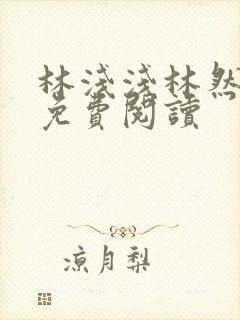 林淺淺林然
免費閱讀
涼月梨